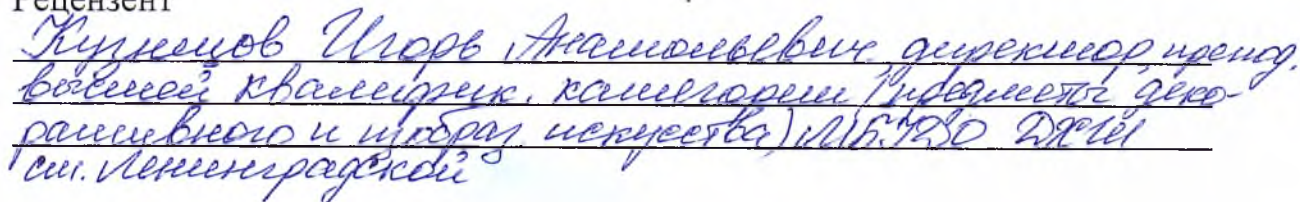 Рецензент
Кузнецов Игорь Анатольевич, директор, препод.
высшей квалифик. категории (предметы деко-
ративного и изобраз. искусства) МБУДО ДХШ
ст. Ленинградской